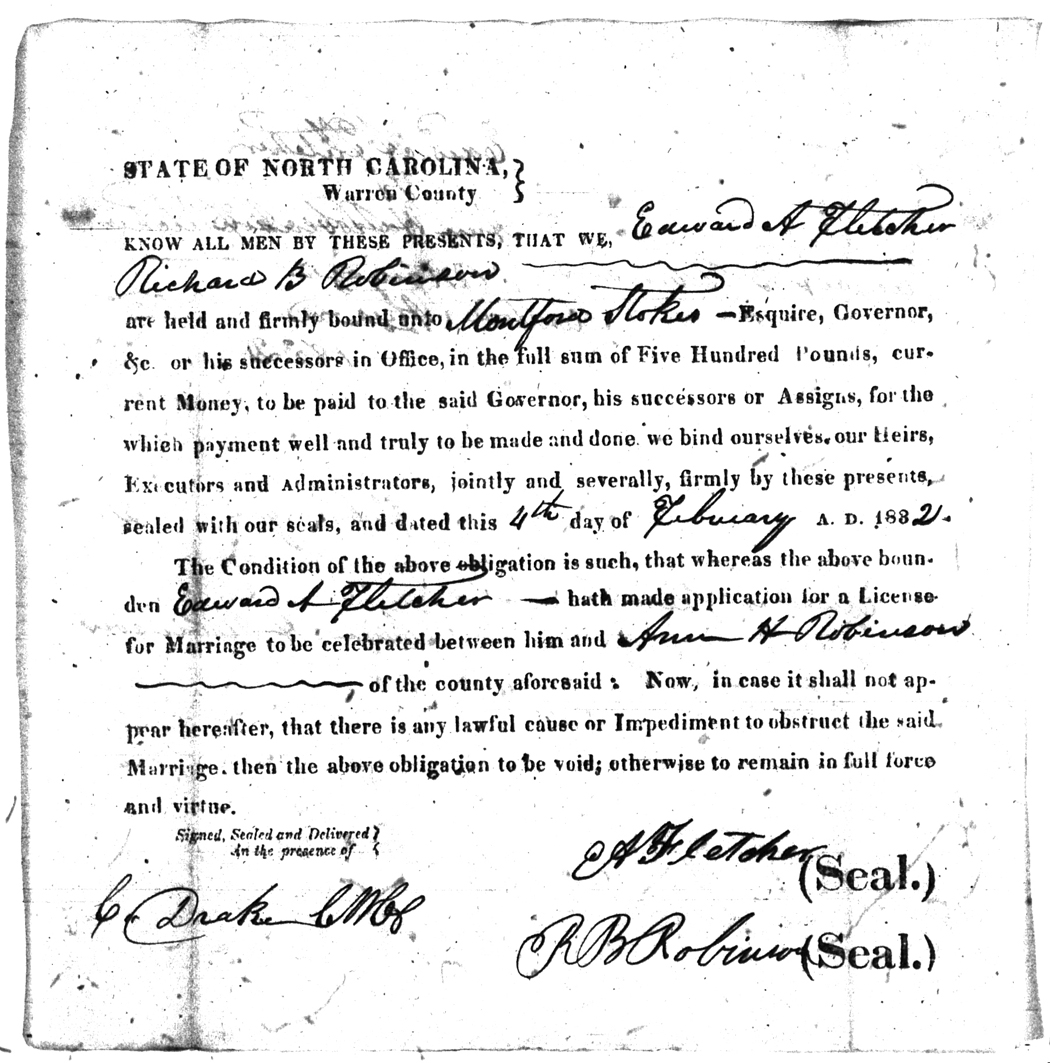 STATE OF NORTH CAROLINA,
Warren County
KNOW ALL MEN BY THESE PRESENTS, THAT WE, Edward A Fletcher
Richard B Robinson
are held and firmly bound unto Montford Stokes —Esquire, Governor,
&c. or his successors in Office, in the full sum of Five Hundred Pounds, cur-
rent Money, to be paid to the said Governor, his successors or Assigns, for the
which payment well and truly to be made and done. we bind ourselves, our Heirs,
Executors and Administrators, jointly and severally, firmly by these presents,
sealed with our seals, and dated this 4th day of February A. D. 1832.
The Condition of the above obligation is such, that whereas the above boun-
den Edward A Fletcher — hath made application for a License
for Marriage to be celebrated between him and Ann H Robinson
of the county aforesaid: Now, in case it shall not ap-
pear hereafter, that there is any lawful cause or Impediment to obstruct the said
Marriage. then the above obligation to be void; otherwise to remain in full force
and virtue.
Signed, Sealed and Delivered
in the presence of
A Fletcher (Seal.)
C. Drake CWCC
R B Robinson (Seal.)